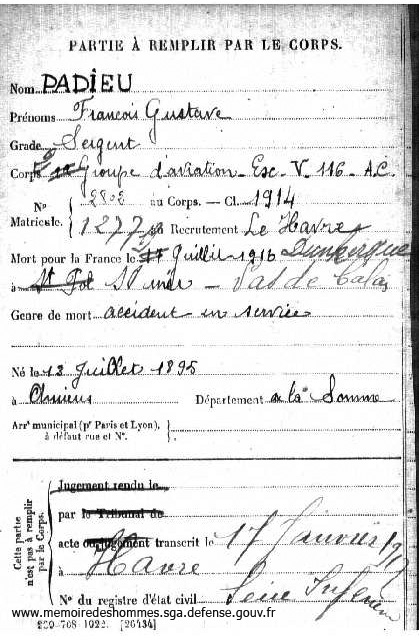 PARTIE À REMPLIR PAR LE CORPS.
Nom PADIEU
Prénoms François Gustave
Grade Sergent
Corps Groupe d'aviation - Esc. V 116 - A.C.
N° 2808 au Corps. — Cl. 1914
Matricule. 1277 au Recrutement Le Havre
Mort pour la France le Juillet 1916 Dunkerque
à St Pol S/ mer - Pas de Calais
Genre de mort accident en service
Né le 13 Juillet 1895
à Amiens Département de la Somme
Arr<sup>t</sup> municipal (p<sup>r</sup> Paris et Lyon),
à défaut rue et N°.
Cette partie n'est pas à remplir par le Corps.
Jugement rendu le
par le Tribunal de
acte ou jugement transcrit le 17 Janvier
à Havre
N° du registre d'état civil Seine Inférieure
www.memoiredeshommes.sga.defense.gouv.fr
[26434]